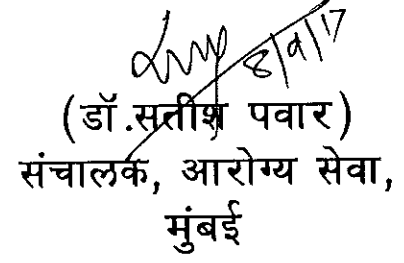 8/9/17
(डॉ.सतीश पवार)
संचालक, आरोग्य सेवा,
मुंबई